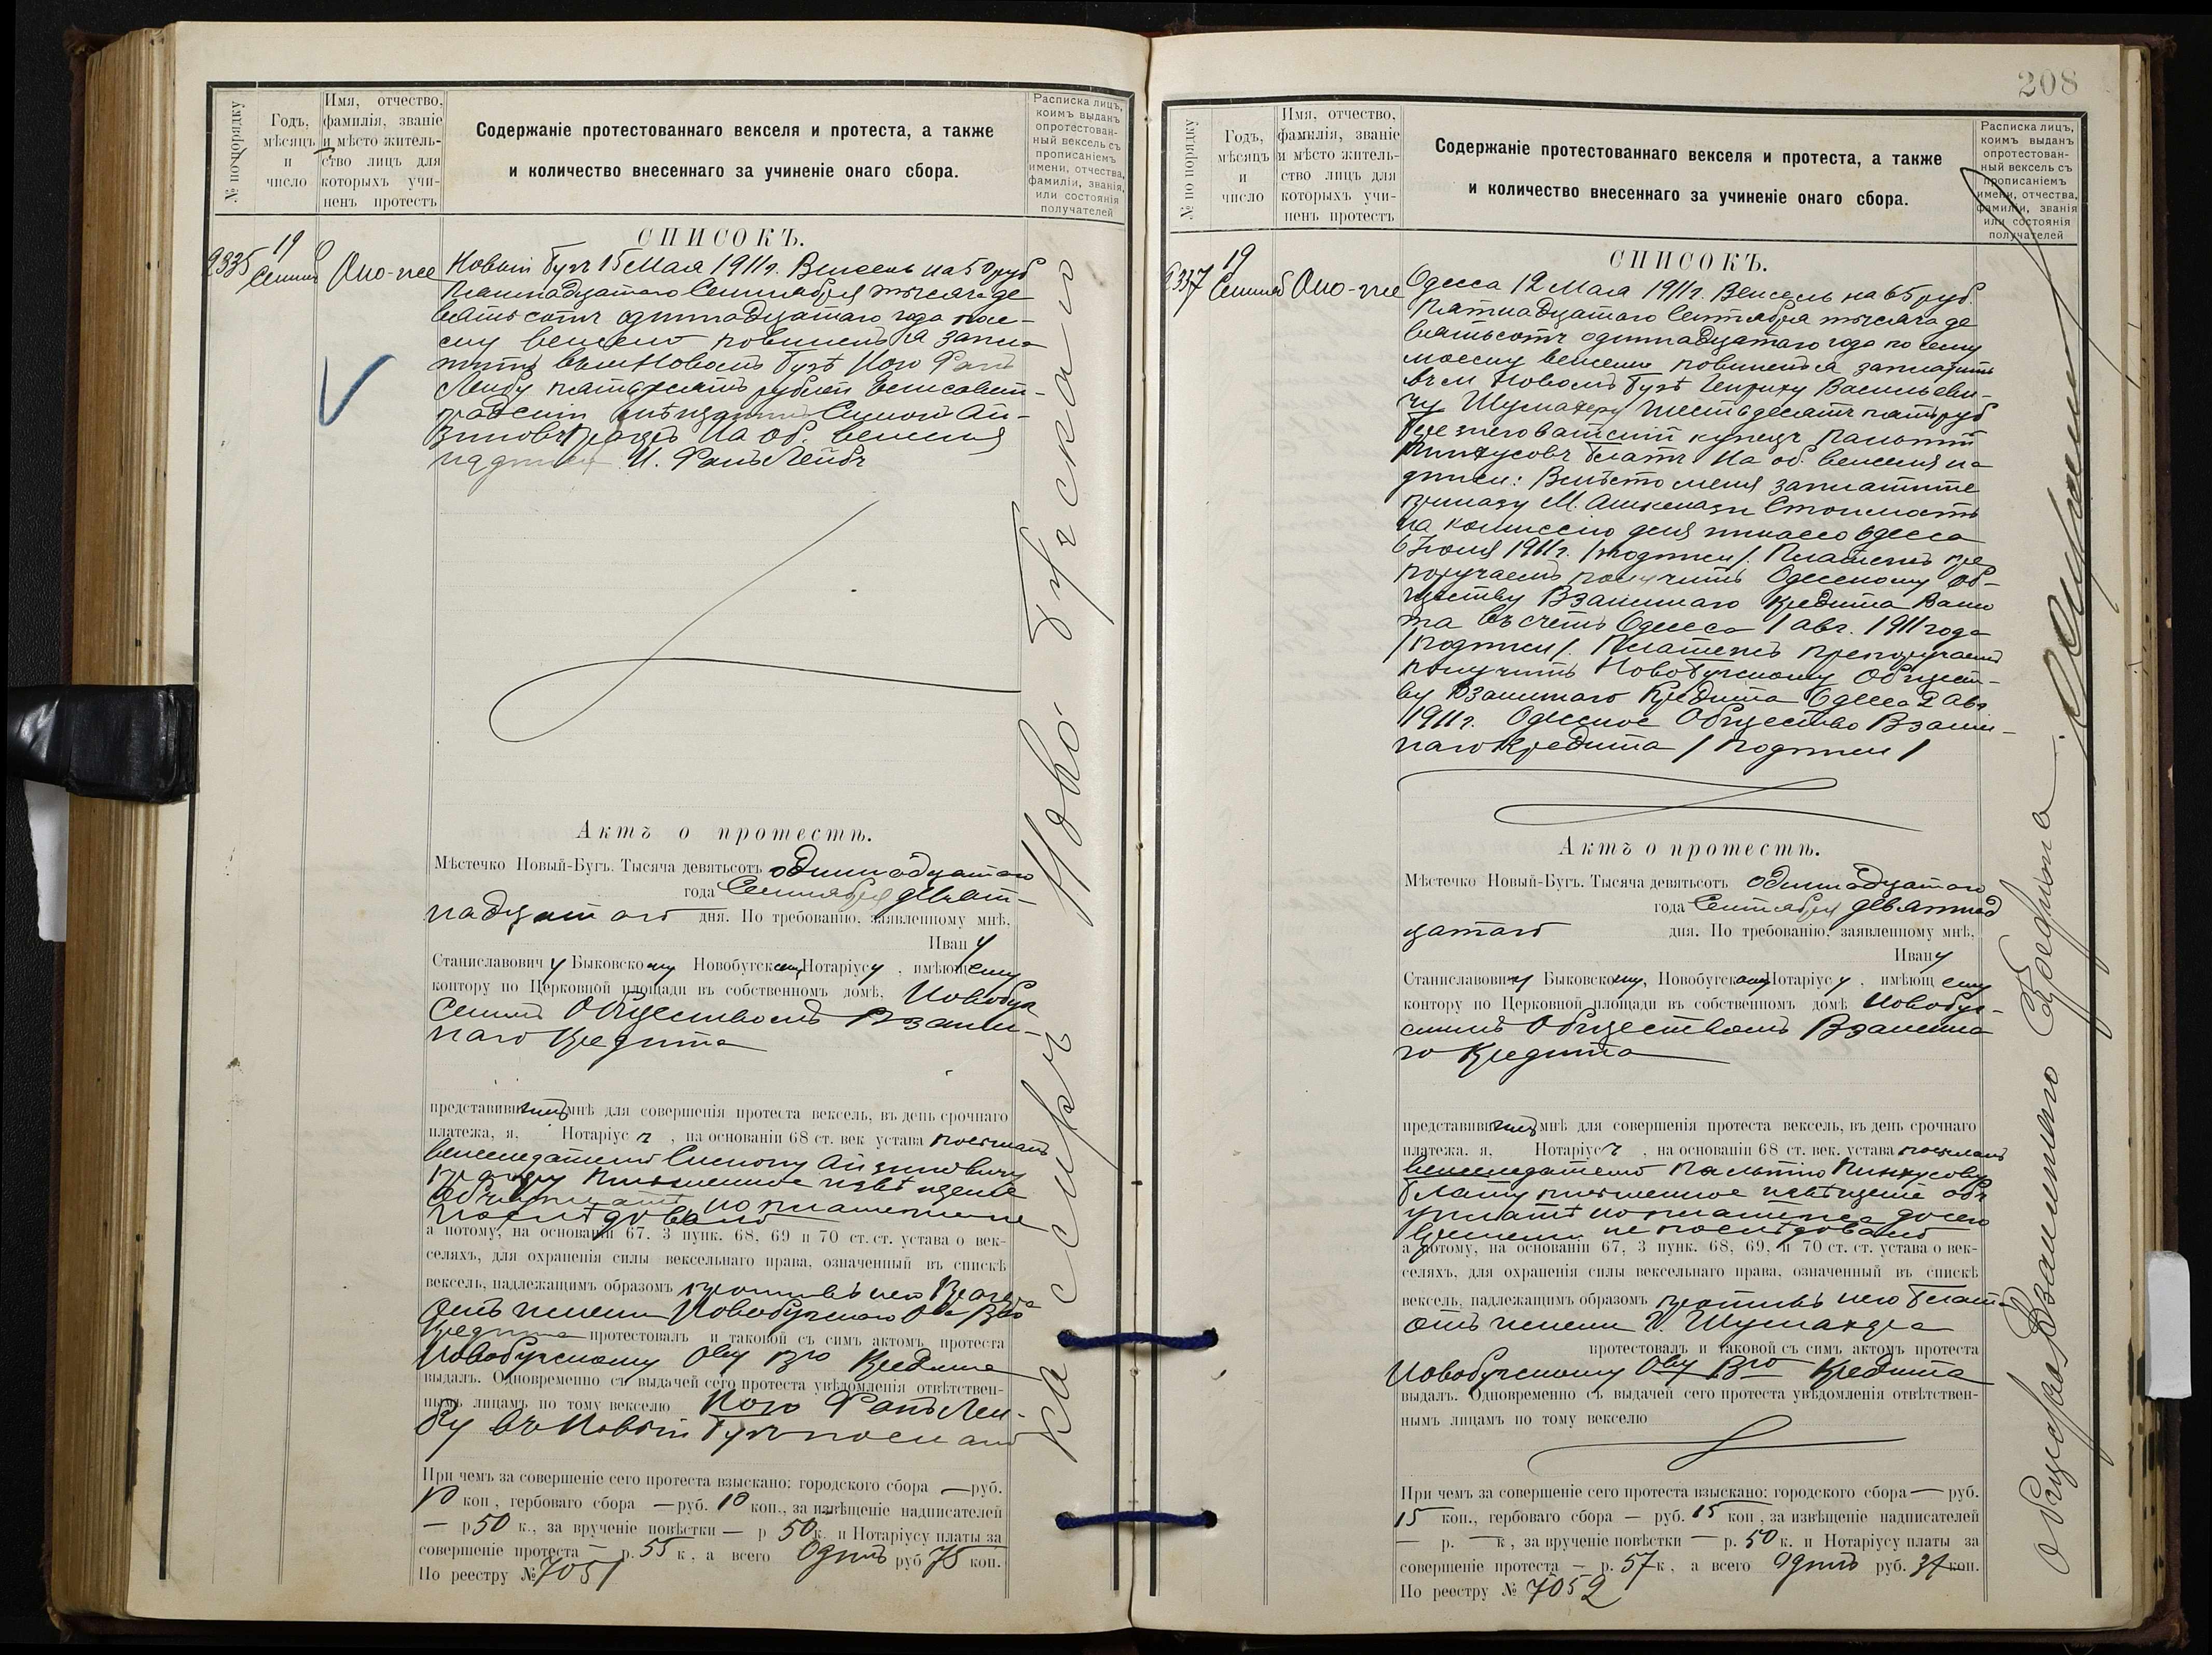 № по порядку
Годъ, мѣсяцъ и число
Имя, отчество, фамилія, званіе и мѣсто жительство лицъ для которыхъ учиненъ протестъ
Содержаніе протестованнаго векселя и протеста, а также
и количество внесеннаго за учиненіе онаго сбора.
Расписка лицъ, коимъ выданъ опротестованный вексель съ прописаніемъ имени, отчества, фамиліи, званія, или состоянія получателей
СПИСОКЪ.
19
Новый Бугъ 15 Мая 1911 г. Вексель на 50 руб
Пятнадцатаго Сентября тысяча де
вятьсотъ одиннадцатаго года по се-
му векселю повиненъ я запла
тить въ м. Новомъ Бугѣ
Лейбу пятьдесятъ рублей Елисавет-
градскій мѣщанинъ Симонъ Ай-
зиковъ на об. векселя
надписи И. Лейбъ
Актъ о протестѣ.
Мѣстечко Новый-Бугъ. Тысяча девятьсотъ одиннадцатаго
года Сентября девят-
надцатаго дня. По требованію, заявленному мнѣ,
Ивану
Станиславовичу Быковскому Новобугскому Нотаріусу, имѣющему
контору по Церковной площади въ собственномъ домѣ, Новобуг
скимъ Обществомъ Взаим-
наго Кредита
представившимъ мнѣ для совершенія протеста вексель, въ день срочнаго
платежа, я, Нотаріусъ, на основаніи 68 ст. век устава послалъ
векселедателю Симону Айзиковичу
письменное извѣщеніе
но платежа не
послѣдовало
а потому, на основаніи 67. 3 пунк. 68, 69 и 70 ст. ст. устава о век-
селяхъ, для охраненія силы вексельнаго права, означенный въ спискѣ
вексель, надлежащимъ образомъ противъ него
отъ имени Новобугскаго Ова Вго
Кредита протестовалъ и таковой съ симъ актомъ протеста
Новобугскому Ову Вго Кредита
выдалъ. Одновременно съ выдачей сего протеста увѣдомленія отвѣтствен-
нымъ лицамъ по тому векселю Лей-
бу въ Новый Бугъ послано
При чемъ за совершеніе сего протеста взыскано: городского сбора — руб.
10 коп, гербоваго сбора — руб. 10 коп., за извѣщеніе надписателей
— р 50 к., за врученіе повѣстки — р 50 к. и Нотаріусу платы за
совершеніе протеста — р. 55 к, а всего Одинъ руб 75 коп.
По реестру № 7051
Кассиръ Новобугскаго
208
№ по порядку
Годъ, мѣсяцъ и число
Имя, отчество, фамилія, званіе и мѣсто жительство лицъ для которыхъ учиненъ протестъ
Содержаніе протестованнаго векселя и протеста, а также
и количество внесеннаго за учиненіе онаго сбора.
Расписка лицъ, коимъ выданъ опротестованный вексель съ прописаніемъ имени, отчества, фамиліи, званія или состоянія получателей
СПИСОКЪ.
19
Одесса 12 Мая 1911 г. Вексель на 65 руб.
Пятнадцатаго Сентября тысяча де
вятьсотъ одиннадцатаго года по сему
моему векселю повиненъ я заплатить
въ м Новомъ Бугѣ Генриху Васильеви-
чу Шумахеру шестьдесятъ пять руб
Березнеговатскій купецъ
Пинхусовъ Блатъ На об. векселя на
дписи: Вмѣсто меня заплатите
приказу М. Ашкенази Стоимость
на комиссію для инкассо Одесса
6 Іюля 1911 г. /подписи/. Платежъ пре
поручаемъ получить Одесскому Об-
ществу Взаимнаго Кредита Валю
та въ счетъ Одесса 1 авг. 1911 года
/подписи/. Платежъ препоручаемъ
получить Новобугскому Общест-
ву Взаимнаго Кредита Одесса 2 авг
1911 г. Одесское Общество Взаим-
наго Кредита / подписи /
Актъ о протестѣ.
Мѣстечко Новый-Бугъ. Тысяча девятьсотъ одиннадцатаго
года Сентября девятнад
цатаго дня. По требованію, заявленному мнѣ,
Ивану
Станиславовичу Быковскому, Новобугскому Нотаріусу, имѣющему
контору по Церковной площади въ собственномъ домѣ Новобуг-
скимъ Обществомъ Взаимна
го Кредита
представившимъ мнѣ для совершенія протеста вексель, въ день срочнаго
платежа. я, Нотаріусъ, на основаніи 68 ст. век. устава послалъ
векселедателю Пинхусову
Блату письменное извѣщеніе объ
уплатѣ но платежа до сего
времени не послѣдовало
а потому, на основаніи 67, 3 пунк. 68, 69, и 70 ст. ст. устава о век-
селяхъ, для охраненія силы вексельнаго права, означенный въ спискѣ
вексель, надлежащимъ образомъ противъ него Блата
отъ имени Г. Шумахера
протестовалъ и таковой съ симъ актомъ протеста
Новобугскому Ову Вго Кредита
выдалъ. Одновременно съ выдачей сего протеста увѣдомленія отвѣтствен-
нымъ лицамъ по тому векселю
При чемъ за совершеніе сего протеста взыскано: городского сбора — руб.
15 коп., гербоваго сбора — руб. 15 коп, за извѣщеніе надписателей
— р. — к, за врученіе повѣстки — р. 50 к. и Нотаріусу платы за
совершеніе протеста — р. 57 к, а всего один руб. 37 коп.
По реестру № 7052
общества Взаимнаго Кредита